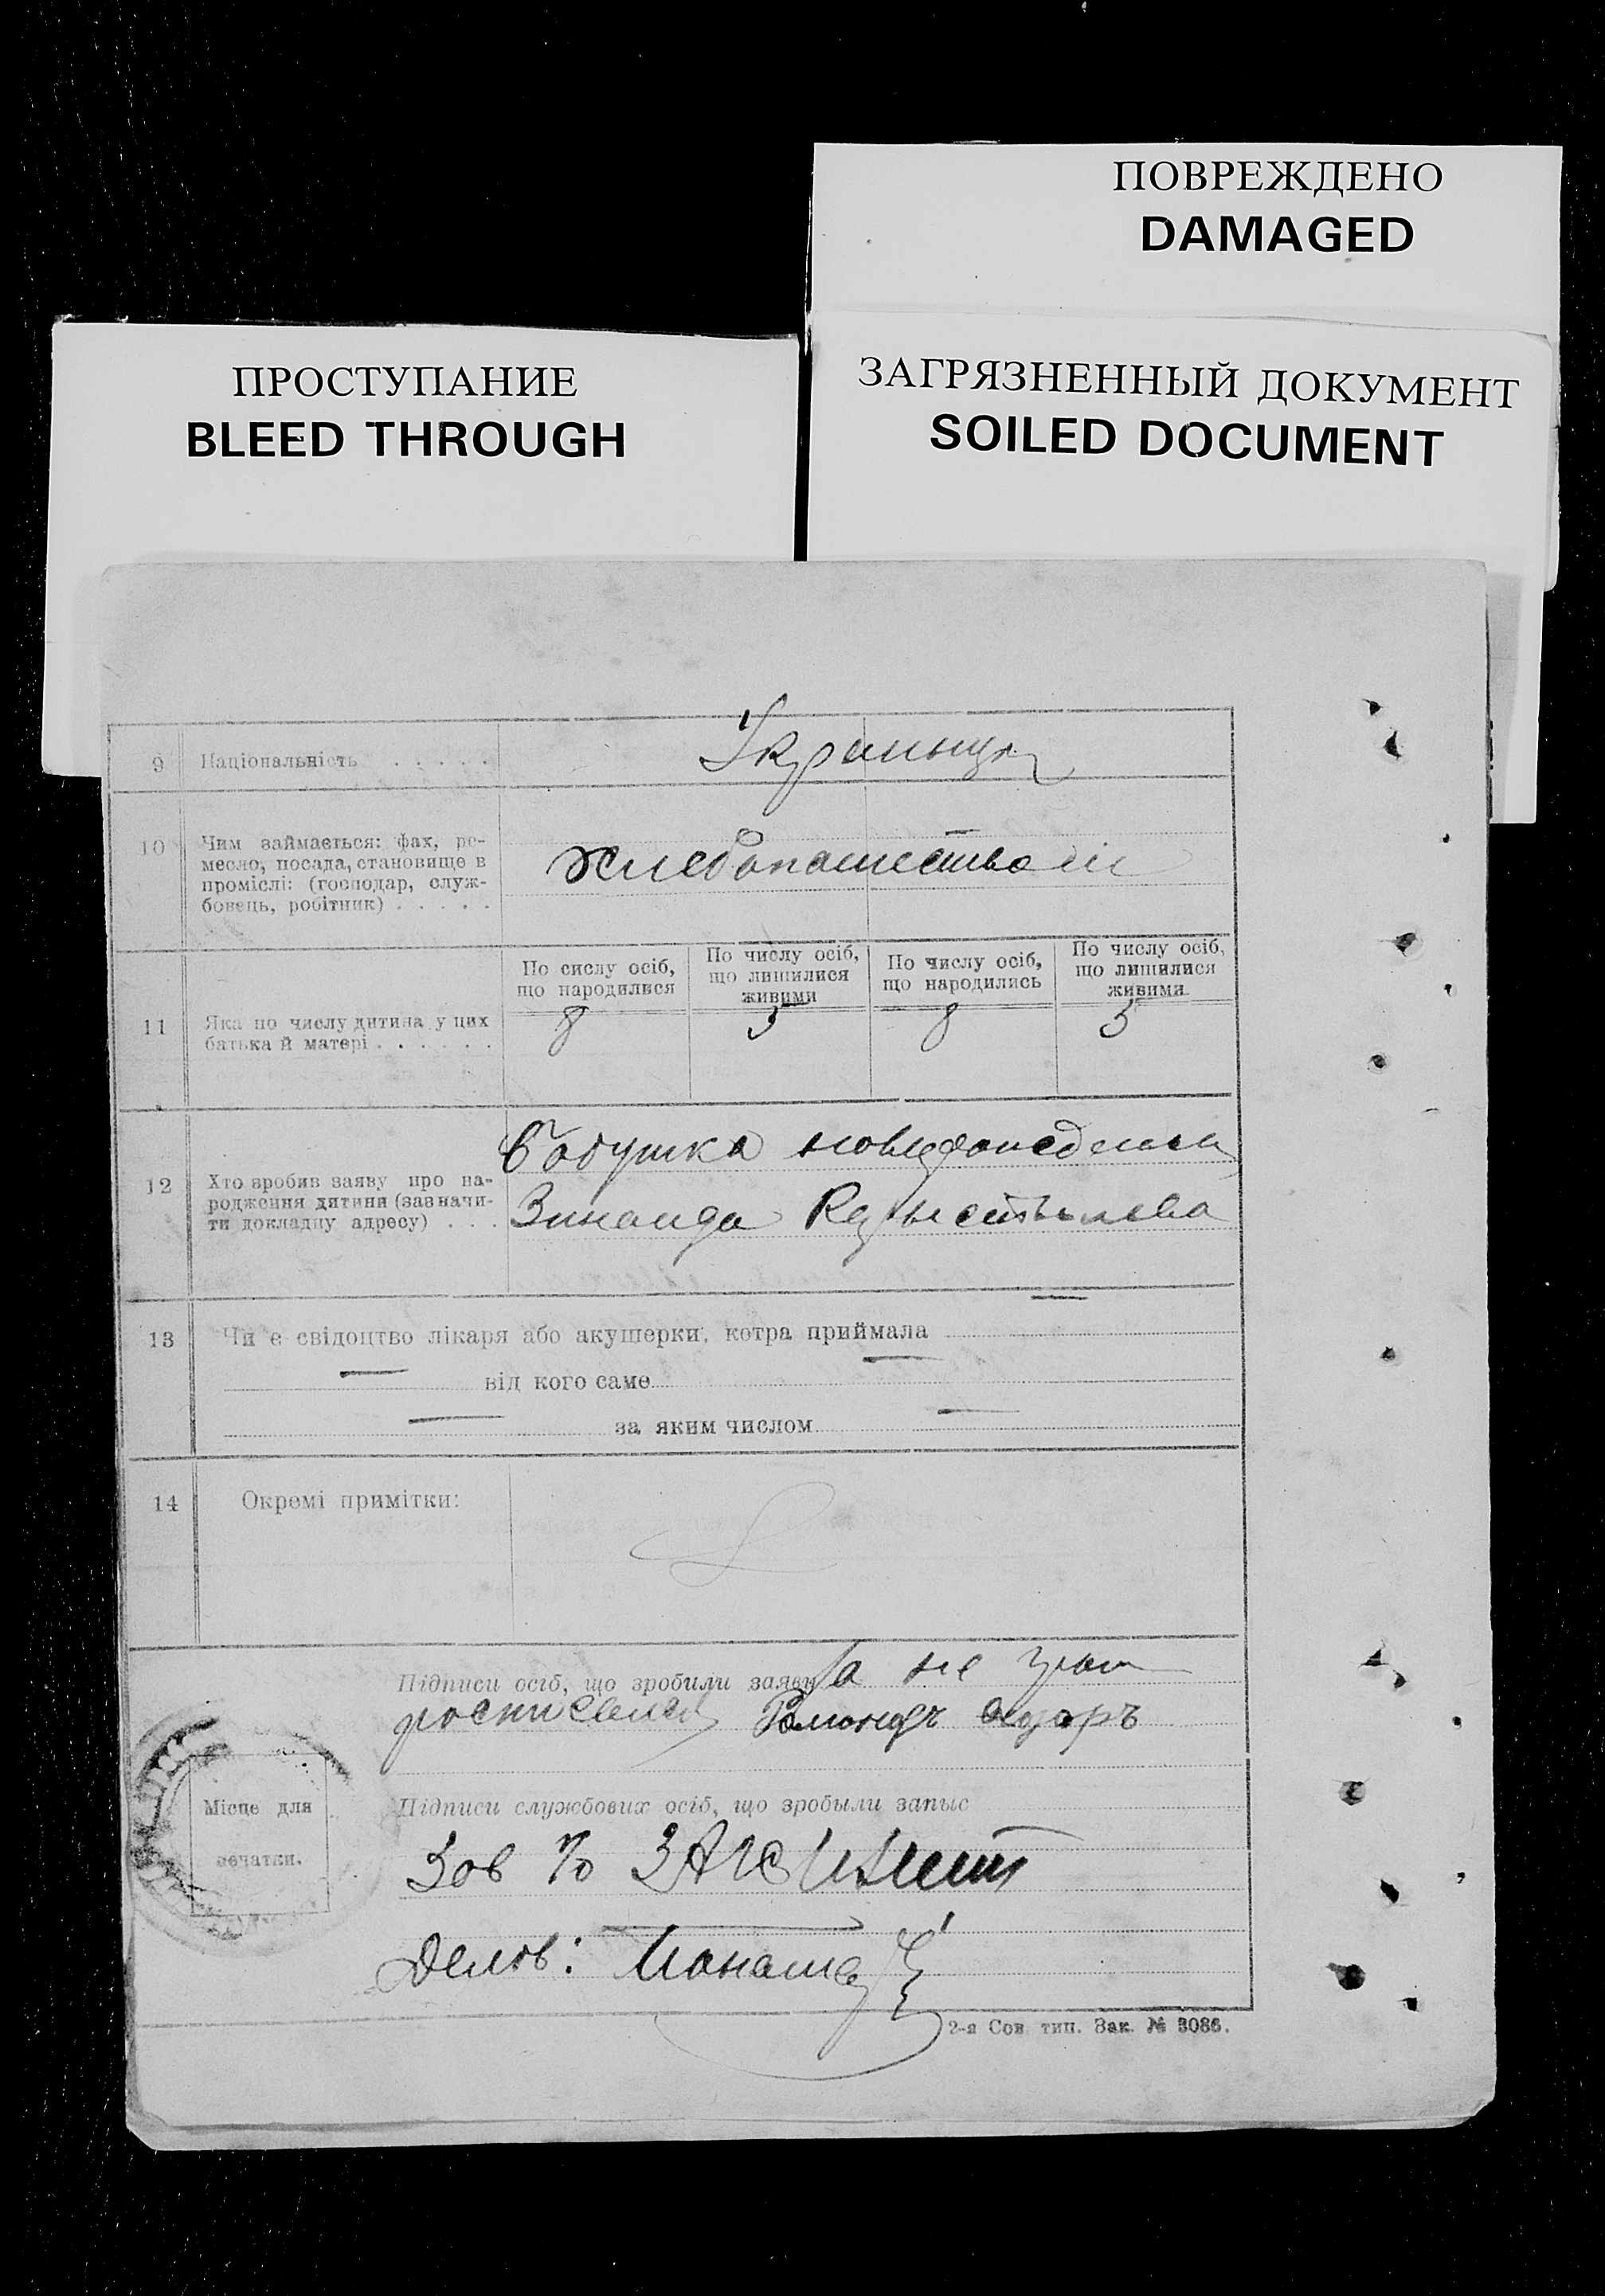 ПОВРЕЖДЕНО
DAMAGED
ПРОСТУПАНИЕ
BLEED THROUGH
ЗАГРЯЗНЕННЫЙ ДОКУМЕНТ
SOILED DOCUMENT
9 Національність . . . . .
10 Чим займається: фах, ре-
месло, посада, становище в
проміслі: (господар, служ-
бовець, робітник) . . . . .
хлебопашеством
По сислу осіб,
що народилися
По числу осіб,
що лишилися
живими
По числу осіб,
що народились
По числу осіб,
що лишилися
живими
11 Яка по числу дитина у цих
батька й матері . . . . . .
8 5 8 5
12 Хто зробив заяву про на-
родження дитини (зазначи-
ти докладну адресу) . . .
Бабушка
Зинаида
13 Чи є свідоцтво лікаря або акушерки, котра приймала
від кого саме
за яким числом
14 Окремі примітки:
Підписи осіб, що зробили заяву
за не
Місце для
печатки.
Підписи службових осіб, що зробыли запыс
Зав П/о ЗАГС
Делов:
2-я Сов. тип. Зак. № 3086.